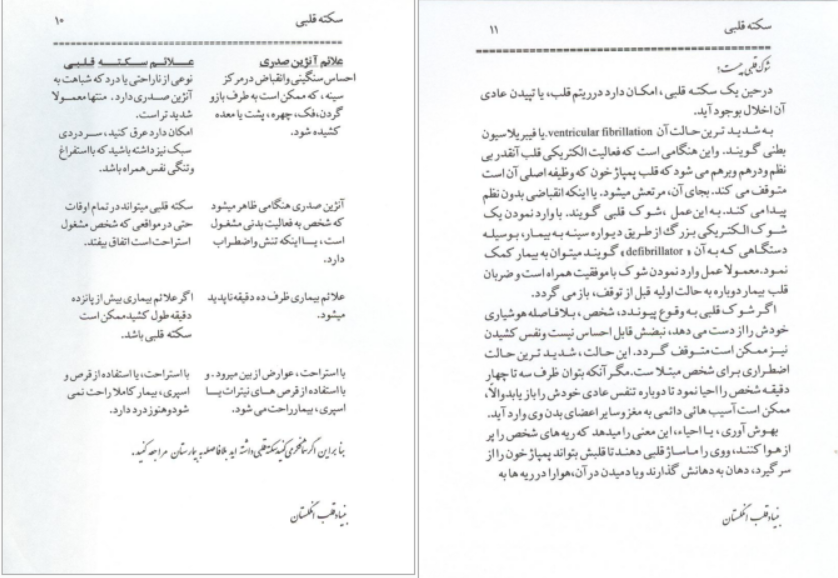 سکته قلبی
۱۰
علائم آنژین صدری
احساس سنگینی وانقباض درمرکز
سینه ، که ممکن است به طرف بازو
گردن،فک، چهره ، پشت یا معده
کشیده شود.
علائم سکته قلبی
نوعی از ناراحتی یا درد که شباهت به
آنژین صدری دارد . منتها معمولا
شدید تر است.
امکان دارد عرق کنید ، سر دردی
سبک نیز داشته باشید که بااستفراغ
وتنگی نفس همراه باشد.
آنژین صدری هنگامی ظاهر میشود
که شخص به فعالیت بدنی مشغول
است ، یا اینکه تنش واضطراب
دارد.
سکته قلبی میتواند در تمام اوقات
حتی در مواقعی که شخص مشغول
استراحت است اتفاق بیفتد.
علائم بیماری ظرف ده دقیقه ناپدید
میشود.
اگر علائم بیماری بیش از پانزده
دقیقه طول کشید ممکن است
سکته قلبی باشد.
با استراحت ، عوارض از بین میرود . و
با استفاده از قرص های نیترات یا
اسپری ، بیمار راحت می شود.
با استراحت ، یا استفاده از قرص و
اسپری ، بیمار کاملا راحت نمی
شود وهنوز درد دارد.
بنا براین اگر شما فکر می کنید سکته قلبی داشته اید بلا فاصله به بیمارستان مراجعه کنید.
بنیاد قلب انگلستان
سکته قلبی
۱۱
شوک قلبی چیست؟
درحین یک سکته قلبی ، امکان دارد درریتم قلب، یا تپیدن عادی
آن اخلال بوجود آید.
به شدید ترین حالت آن ventricular fibrillation.یا فیبریلاسیون
بطنی گویند. واین هنگامی است که فعالیت الکتریکی قلب آنقدر بی
نظم ودرهم وبرهم می شود که قلب پمپاژ خون که وظیفه اصلی آن است
متوقف می کند. بجای آن، مرتعش میشود. یا اینکه انقباضی بدون نظم
پیدا می کند. به این عمل ،شوک قلبی گویند. با وارد نمودن یک
شوک الکتریکی بزرگ از طریق دیواره سینه به بیمار، بوسیله
دستگاهی که به آن « defibrillator » گویند میتوان به بیمار کمک
نمود. معمولا عمل وارد نمودن شوک با موفقیت همراه است و ضربان
قلب بیمار دوباره به حالت اولیه قبل از توقف، باز می گردد.
اگر شوک قلبی به وقوع پیوندد، شخص ، بلافاصله هوشیاری
خودش را از دست می دهد، نبضش قابل احساس نیست ونفس کشیدن
نیز ممکن است متوقف گردد. این حالت ، شدید ترین حالت
اضطراری برای شخص مبتلا ست. مگر آنکه بتوان ظرف سه تا چهار
دقیقه شخص را احیا نمود تا دوباره تنفس عادی خودش را باز یابد والا،
ممکن است آسیب هائی دائمی به مغز وسایر اعضای بدن وی وارد آید.
بهوش آوری ، یا احیاء، این معنی را میدهد که ریه های شخص را پر
از هوا کنند، ووی را ماساژ قلبی دهند تا قلبش بتواند پمپاژ خون را از
سر گیرد، دهان به دهانش گذارند وبا دمیدن در آن،هوارا در ریه ها به
بنیاد قلب انگلستان